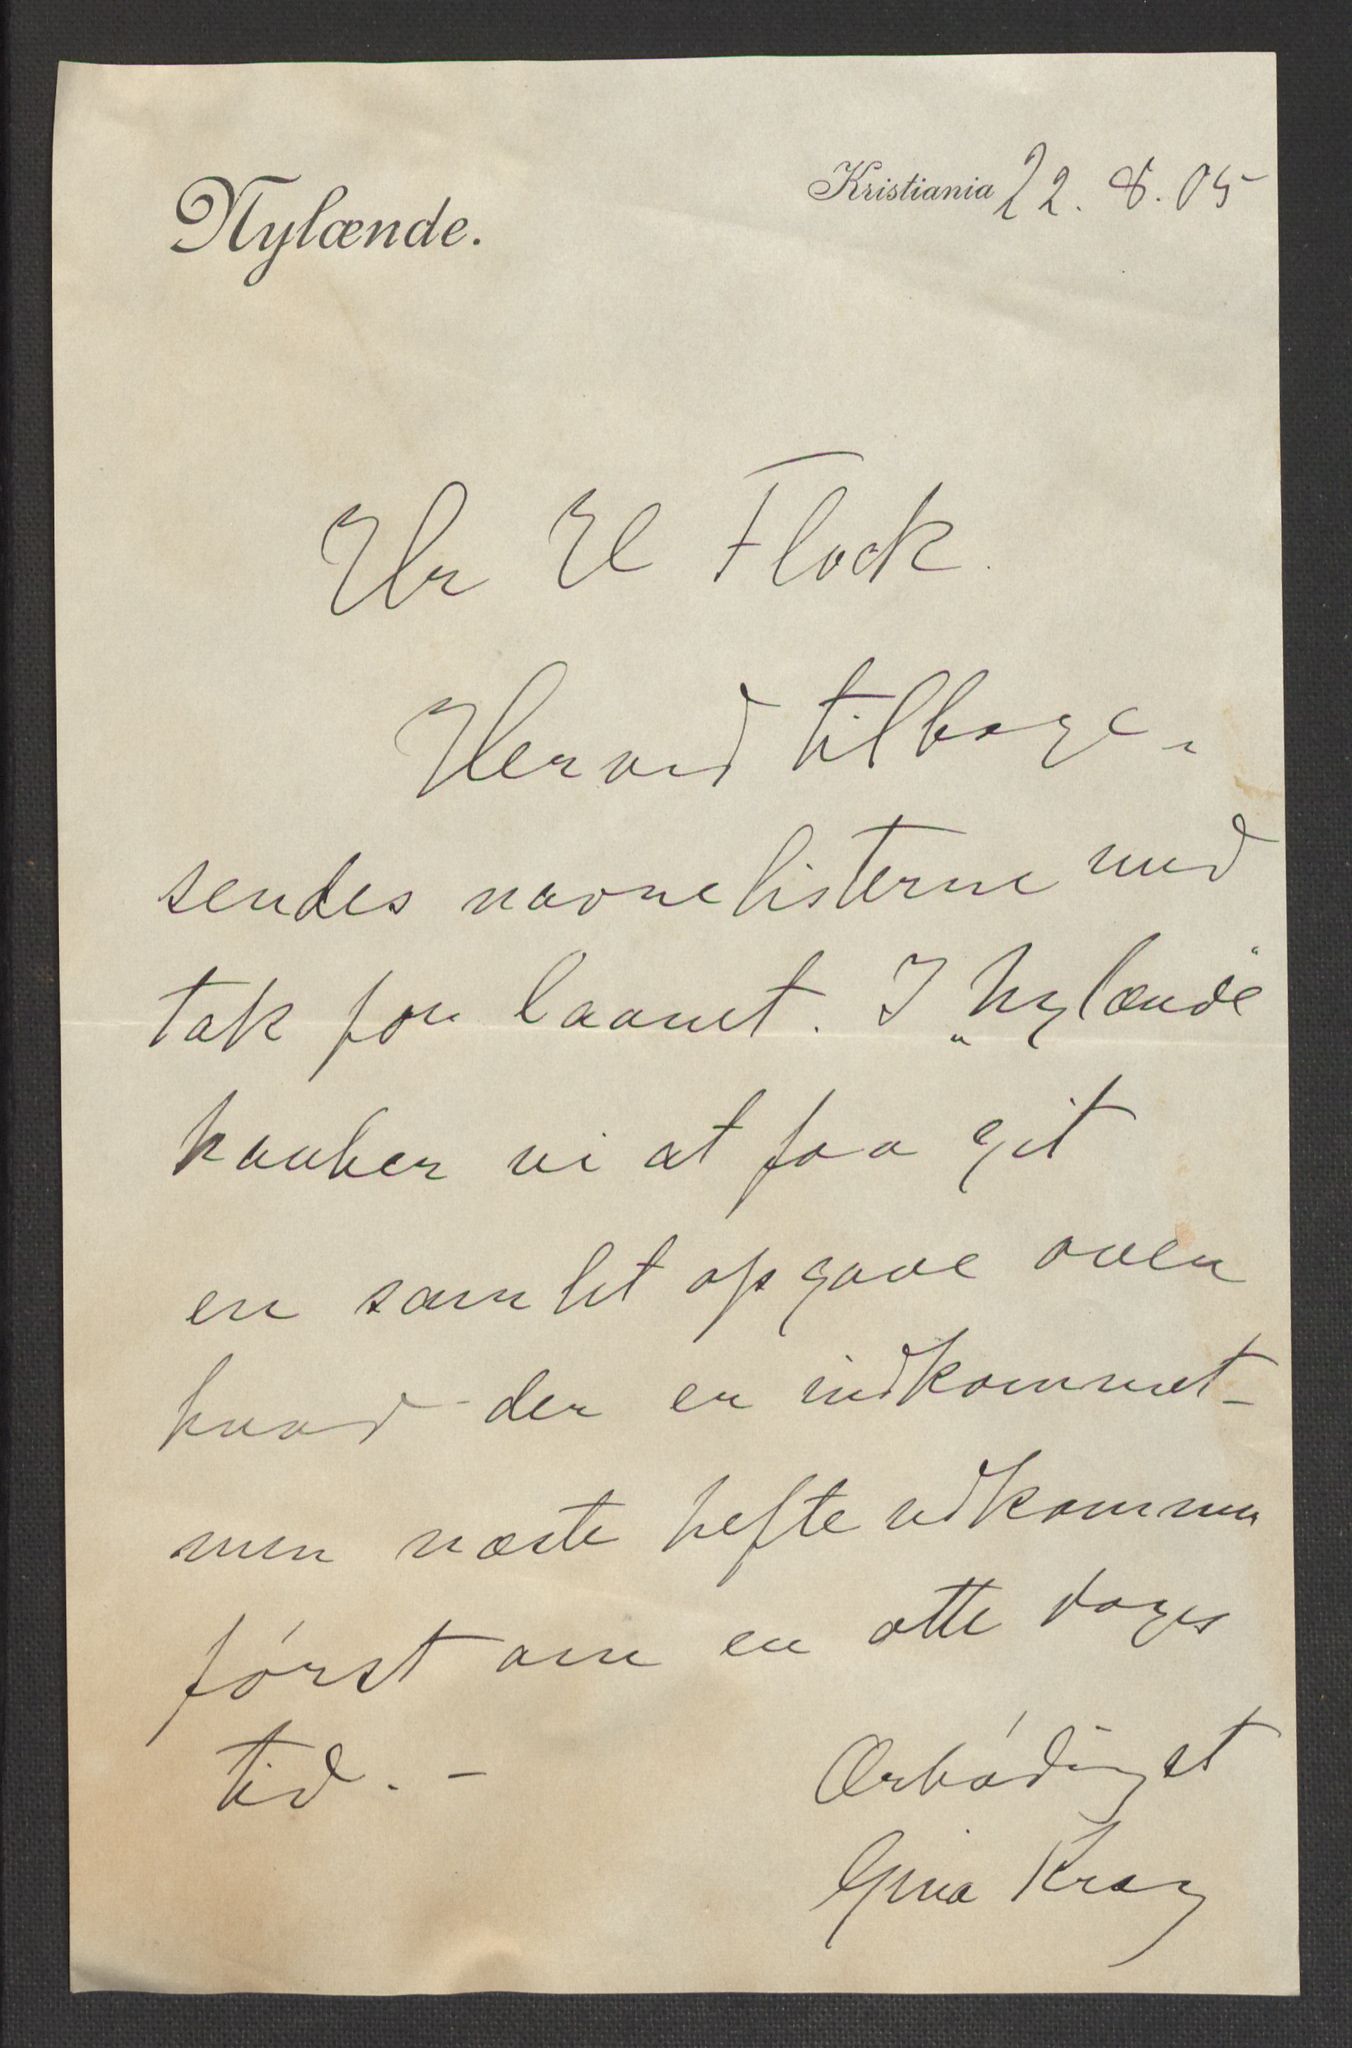 Nylænde.
Kristiania 22. 8. 05
Hr H Flock.
Herved tilbage-
sendes navnelisterne med
tak for laanet. I „Nylænde“
haaber vi at faa git
en samlet opgave over
hvad der er indkommet –
men næste hefte udkommer
først om en otte dages
tid. –
Ærbødigst
Gina Krog